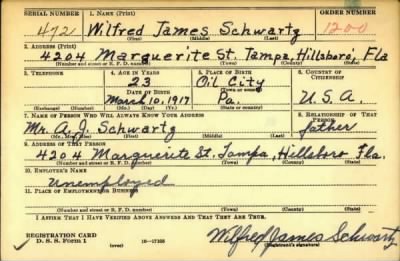 SERIAL NUMBER 1. NAME (Print) ORDER NUMBER
472 Wilfred James Schwartz 1200
(First) (Middle) (Last)
2. ADDRESS (Print)
4204 Marguerite St. Tampa, Hillsboro, Fla
(Number and street or R. F. D. number) (Town) (County) (State)
3. TELEPHONE 4. AGE IN YEARS 5. PLACE OF BIRTH 6. COUNTRY OF CITIZENSHIP
23 Oil City
DATE OF BIRTH (Town or county)
March 10, 1917 Pa. U.S.A.
(Exchange) (Number) (Mo.) (Day) (Yr.) (State or country)
7. NAME OF PERSON WHO WILL ALWAYS KNOW YOUR ADDRESS 8. RELATIONSHIP OF THAT PERSON
Mr. A. J. Schwartz father
(Mr., Mrs., Miss) (First) (Middle) (Last)
9. ADDRESS OF THAT PERSON
4204 Marguerite St., Tampa, Hillsboro Fla.
(Number and street or R. F. D. number) (Town) (County) (State)
10. EMPLOYER'S NAME
Unemployed
11. PLACE OF EMPLOYMENT OR BUSINESS
(Number and street or R. F. D. number) (Town) (County) (State)
I AFFIRM THAT I HAVE VERIFIED ABOVE ANSWERS AND THAT THEY ARE TRUE.
REGISTRATION CARD
D. S. S. Form 1 (over) Wilfred James Schwartz
(Registrant's signature)